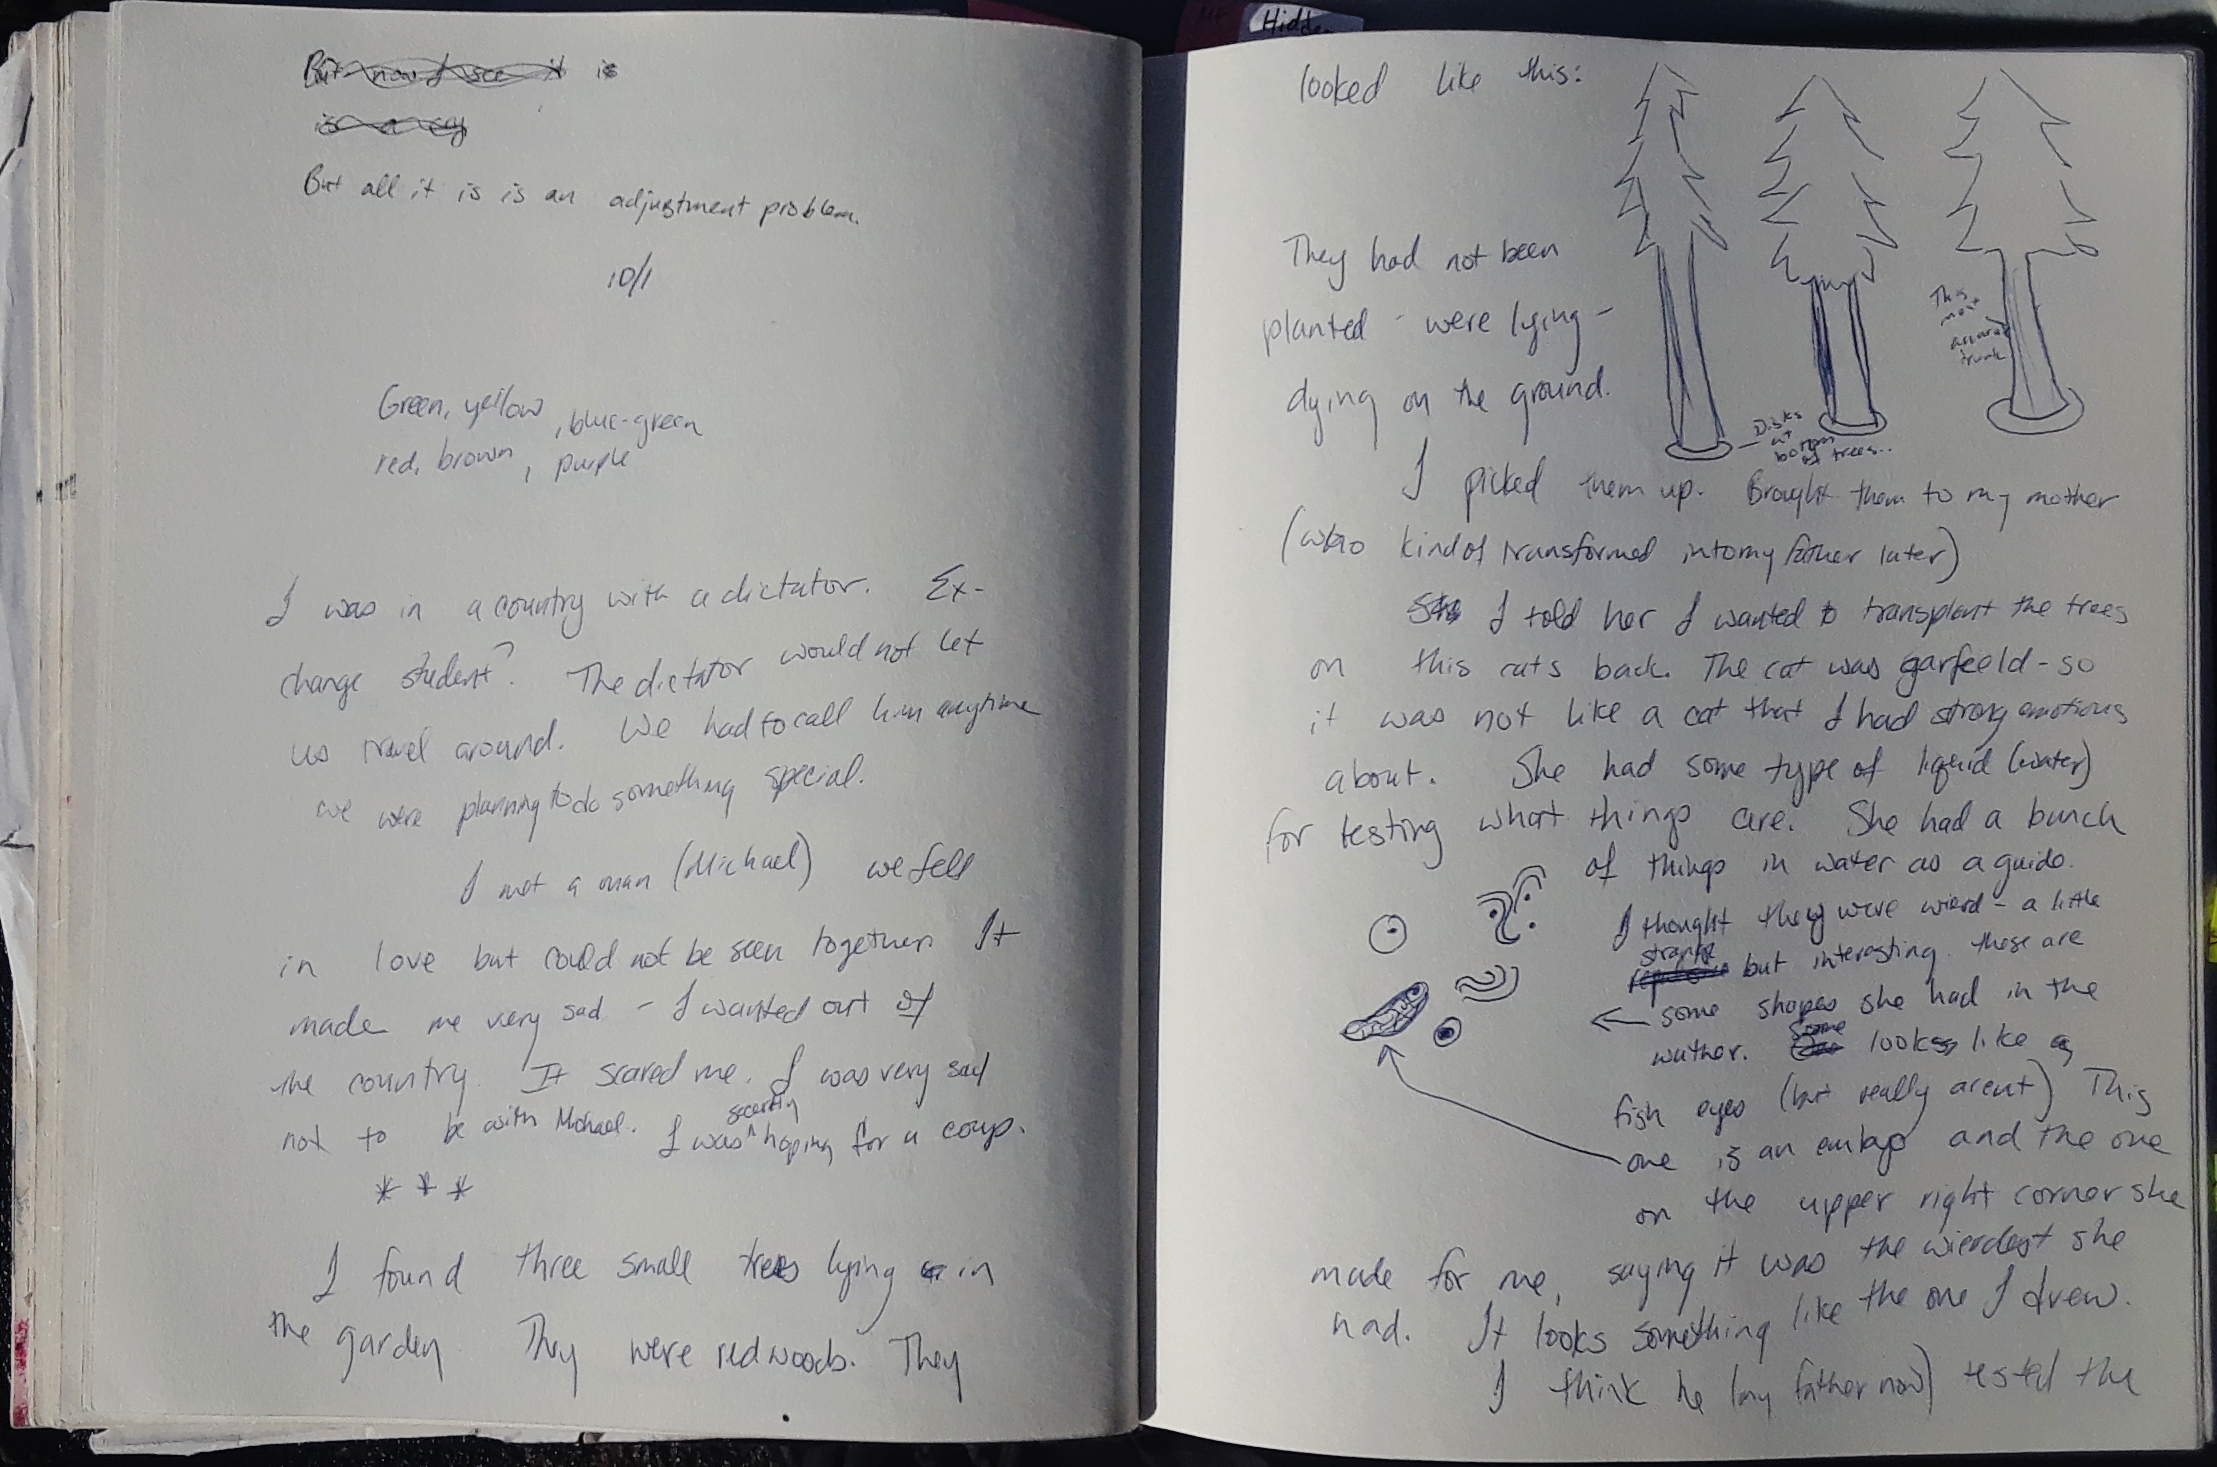 Hidde
But now I see it is
is a cry
But all it is is an adjustment problem.
10/1
Green, yellow, blue-green
red, brown, purple
I was in a country with a dictator. Ex-
change student? The dictator would not let
us travel around. We had to call him anytime
we were planning to do something special.
I met a man (Michael) we fell
in love but could not be seen together. It
made me very sad - I wanted out of
the country. It scared me. I was very sad
not to be with Michael. I was secretly hoping for a coup.
* * *
I found three small trees lying in
the garden They were redwoods. They
looked like this:
They had not been
planted - were lying -
dying on the ground.
This
most
accurate
trunk
Disks
at
bottom
of trees...
I picked them up. Brought them to my mother
(who kind of transformed into my father later)
I told her I wanted to transplant the trees
on this cats back. The cat was garfeeld - so
it was not like a cat that I had strong emotions
about. She had some type of liquid (water)
for testing what things are. She had a bunch
of things in water as a guide.
I thought they were wierd - a little
strange but interesting. these are
some shapes she had in the
wather. Some looks like a
fish eyes (but really arent) This
one is an embryo and the one
on the upper right corner she
made for me, saying it was the wierdest she
had. It looks something like the one I drew.
I think he (my father now) tested the